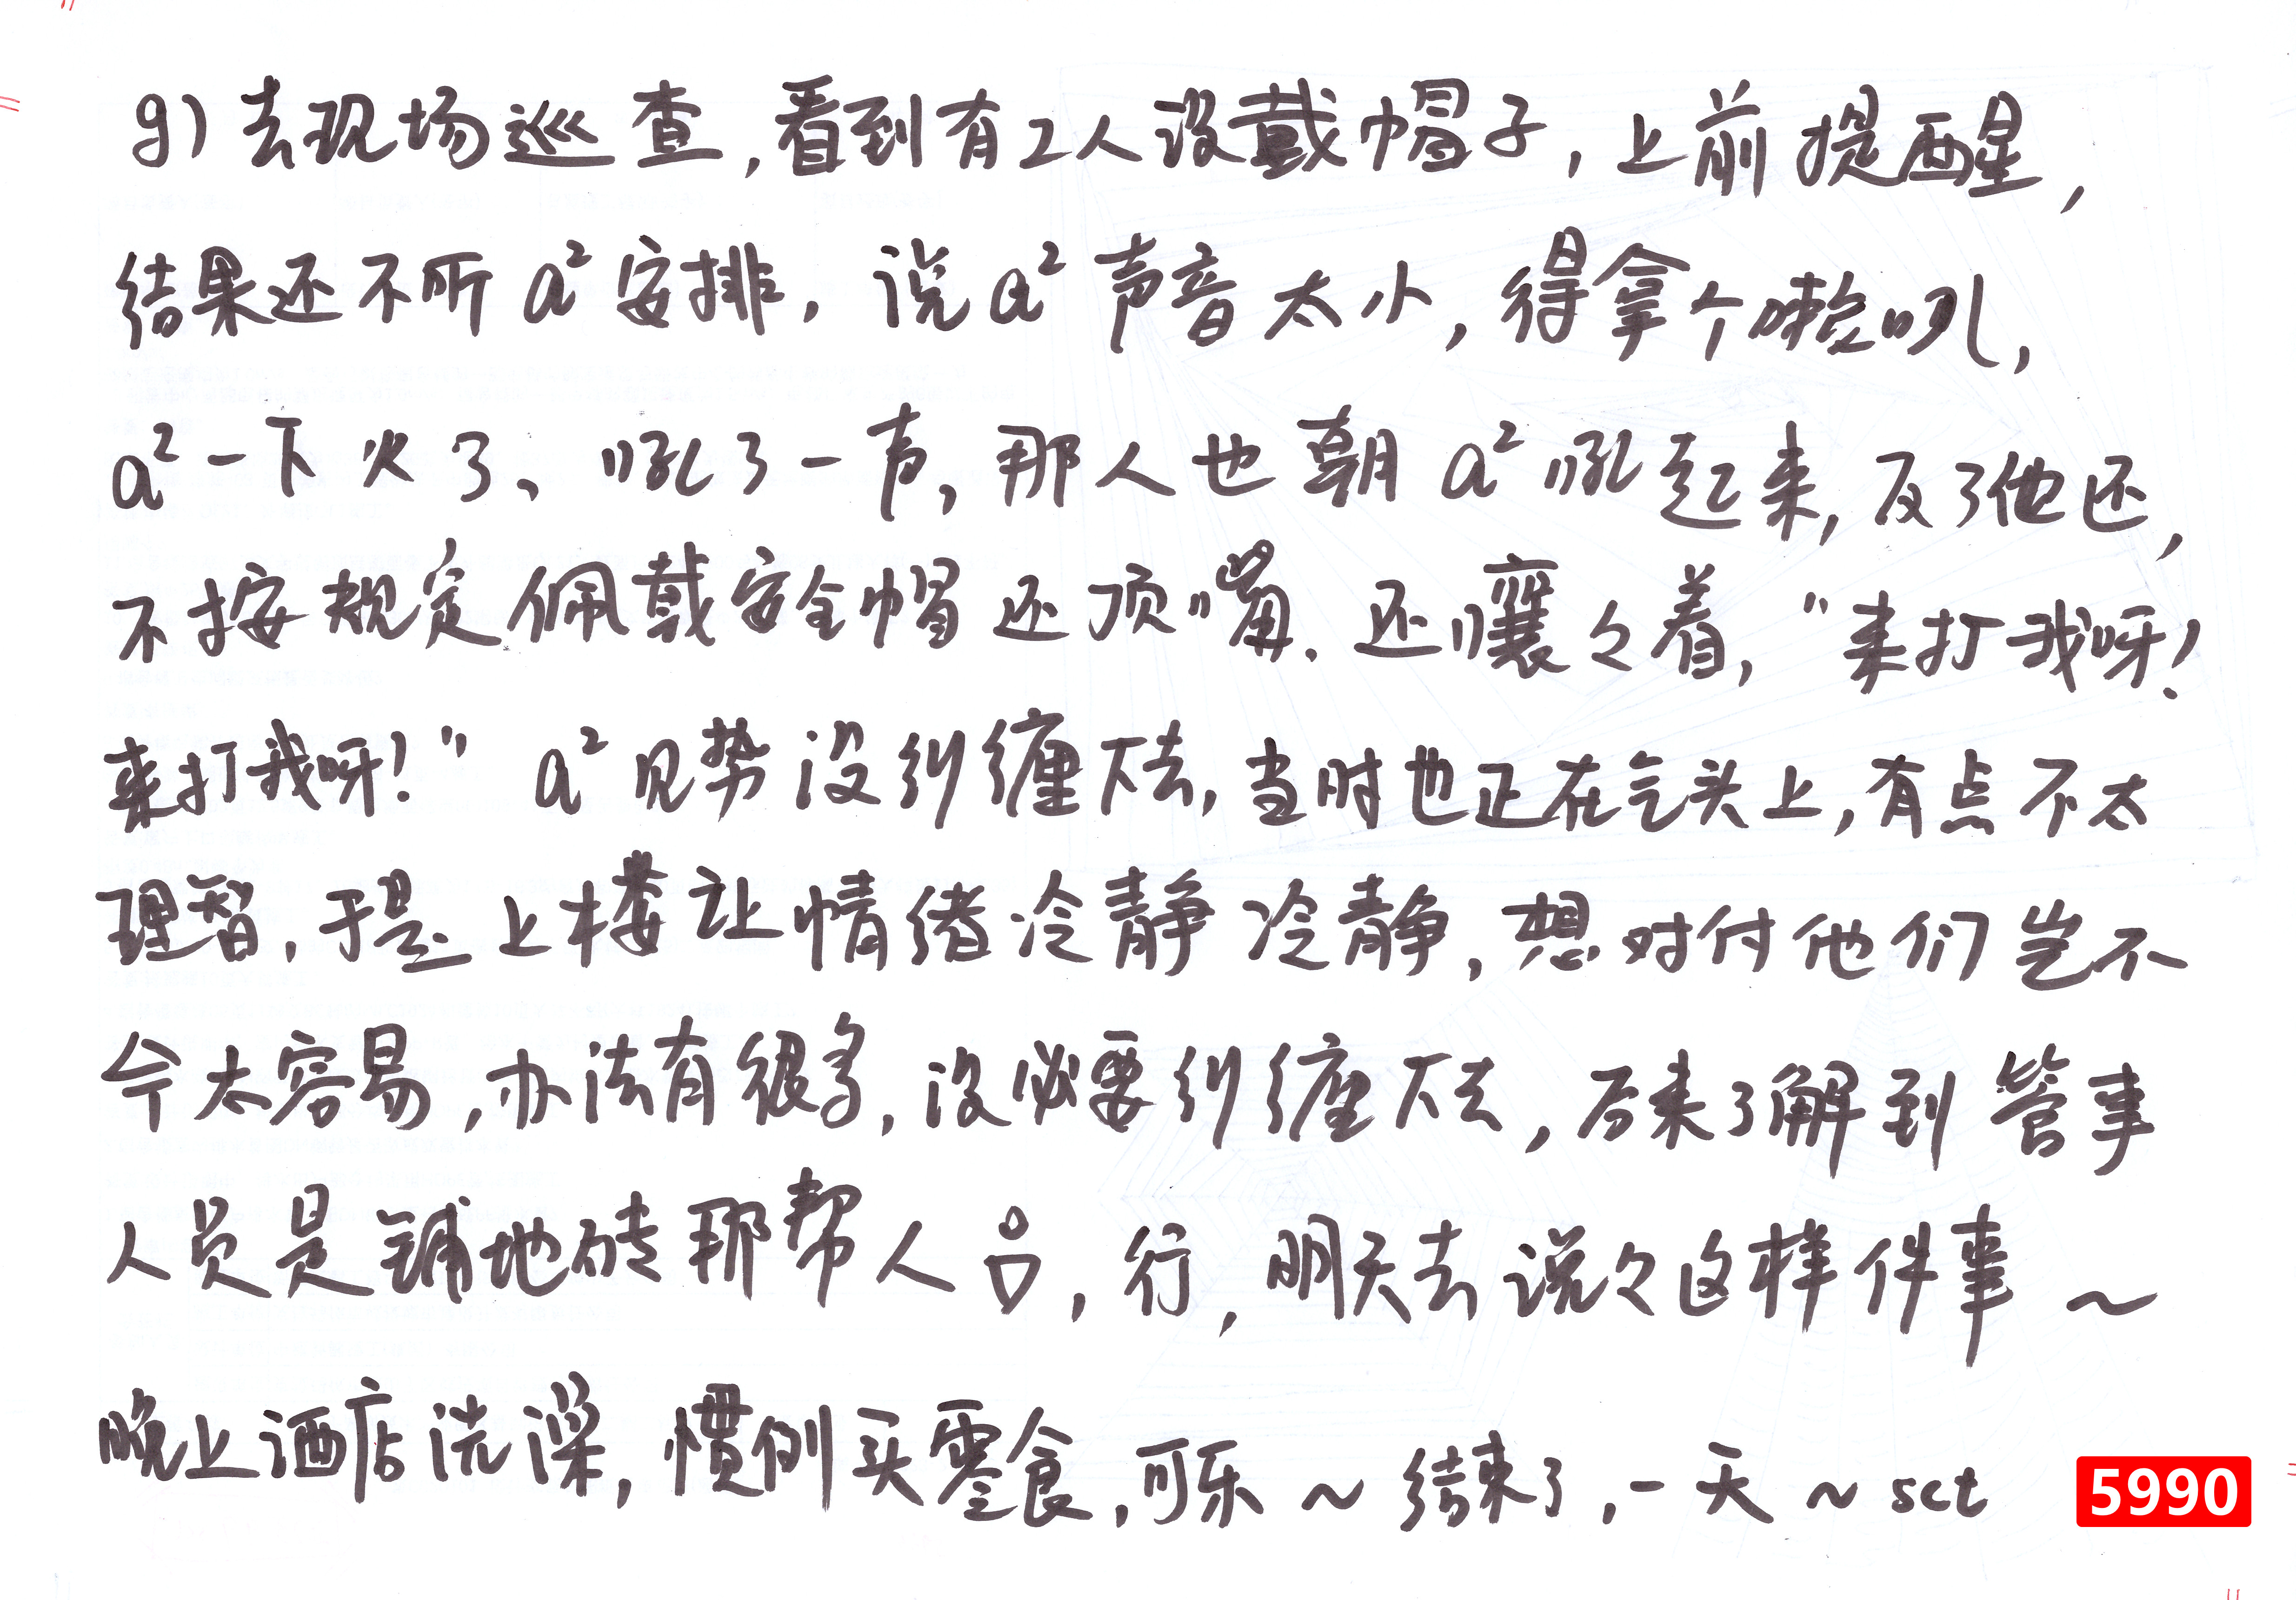 9)去现场巡查,看到有2人没戴帽子,上前提醒,
结果还不听a²安排,说a²声音太小,得拿个喇叭,
a²一下火了、吼了一声,那人也朝a²吼起来,反了他还,
不按规定佩戴安全帽还顶嘴.还嚷々着,"来打我呀!
来打我呀!"a²见势没纠缠下去,当时也正在气头上,有点不太
理智,于是上楼让情绪冷静冷静,想对付他们岂不
今太容易,办法有很多,没必要纠缠下去,后来了解到管事
人员是铺地砖那帮人,行,明天去说々这样件事~
晚上酒店洗澡,惯例买零食,可乐~结束了,一天~sct
5990